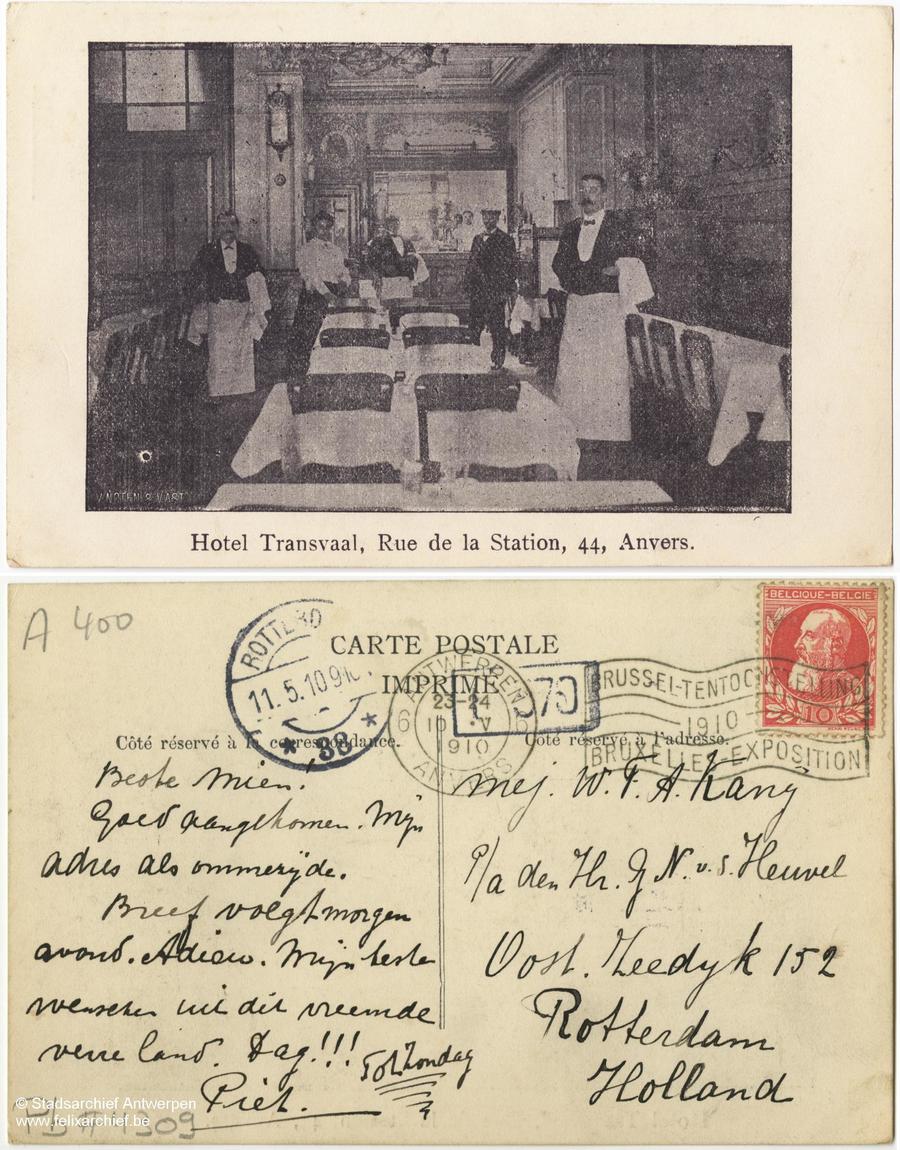 V. NOTEN & VART
Hotel Transvaal, Rue de la Station, 44, Anvers.
A 400
CARTE POSTALE
IMPRIMÉ
ROTTERD
11.5.10 9
* 38 *
ANTWERPEN
6
23-24
10 V
1910
ANVERS
70
BRUSSEL-TENTOONSTELLING
1910
BRUXELLES-EXPOSITION
BELGIQUE-BELGIE
10
Côté réservé à la correspondance.
Côté réservé à l'adresse.
Beste Mien!
Goed aangekomen. Mijn
adres als ommezijde.
Breef volgt morgen
avond. Adieu. Mijn beste
wenschen uit dit vreemde
verre land. Dag!!!
Tot Zondag
Piet.
Mej. W. F. A. Kany
P/a den Hr. J N. v. d. Heuvel
Oost. Zeedyk 152
Rotterdam
Holland
© Stadsarchief Antwerpen
www.felixarchief.be